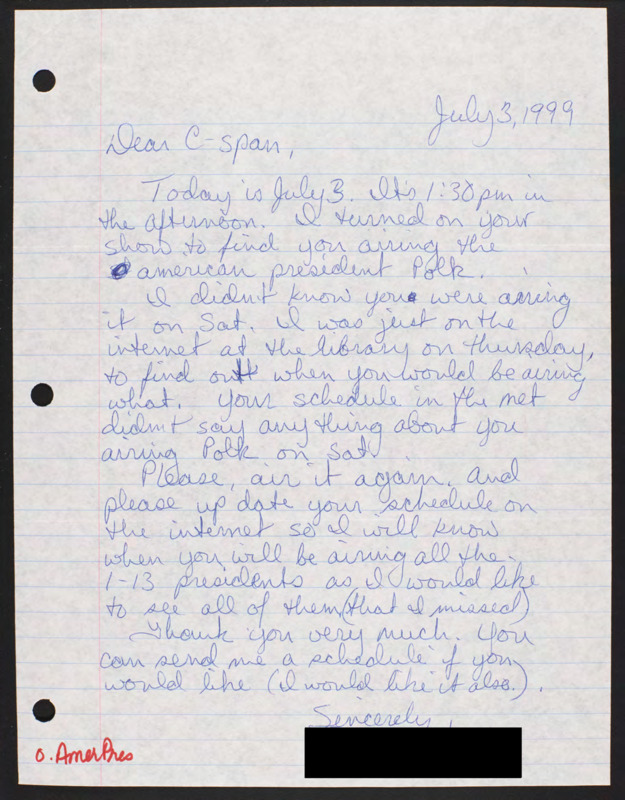 July 3, 1999
Dear C-span,
Today is July 3. It's 1:30 pm in
the afternoon. I turned on your
show to find you airing the
american president Polk.
I didn't know you were airing
it on Sat. I was just on the
internet at the library on thursday,
to find out when you would be airing
what. Your schedule in the net
didn't say any thing about you
airing Polk on Sat.
Please, air it again, and
please up date your schedule on
the internet so I will know
when you will be airing all the
1-13 presidents as I would like
to see all of them (that I missed)
Thank you very much. You
can send me a schedule if you
would like (I would like it also.).
Sincerely,
O. AmerPres